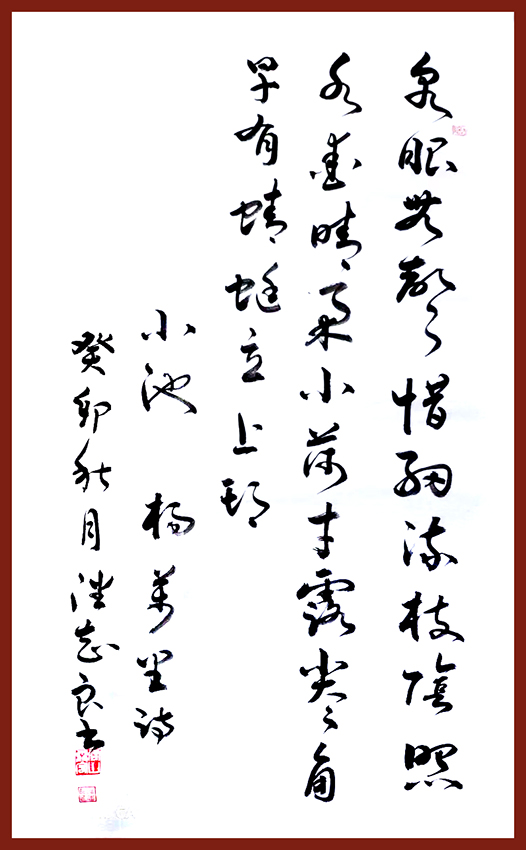 泉眼無聲惜細流枝陰照
水愛晴柔小荷才露尖尖角
早有蜻蜓立上頭
小池 楊萬里詩
癸卯秋月潘志良書